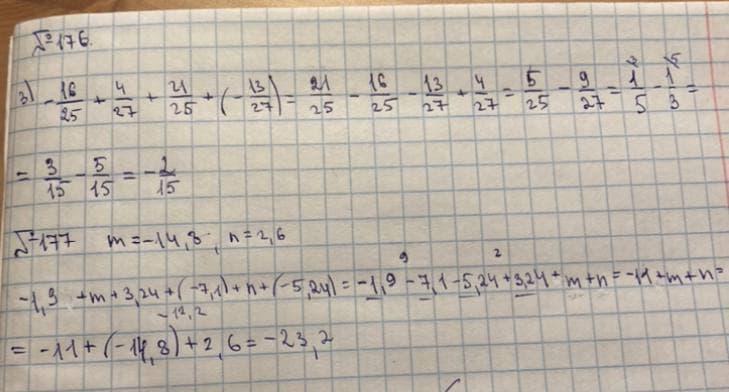 №176.
3) -16/25 + 4/27 + 21/25 + (-13/27) = 21/25 - 16/25 - 13/27 + 4/27 = 5/25 - 9/27 = 1/5 - 1/3 =
= 3/15 - 5/15 = -2/15
№177 m=-14,8, n=2,6
9 2
-1,9 +m+3,24+(-7,1)+n+(-5,24)= -1,9 -7,1 -5,24+3,24+m+n=-11+m+n=
-12,2
= -11+(-14,8)+2,6=-23,2